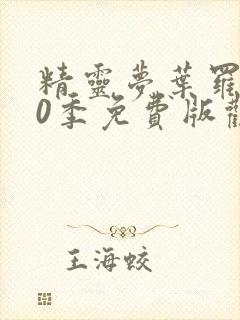 精靈夢葉羅
0季免費版
王海蛟